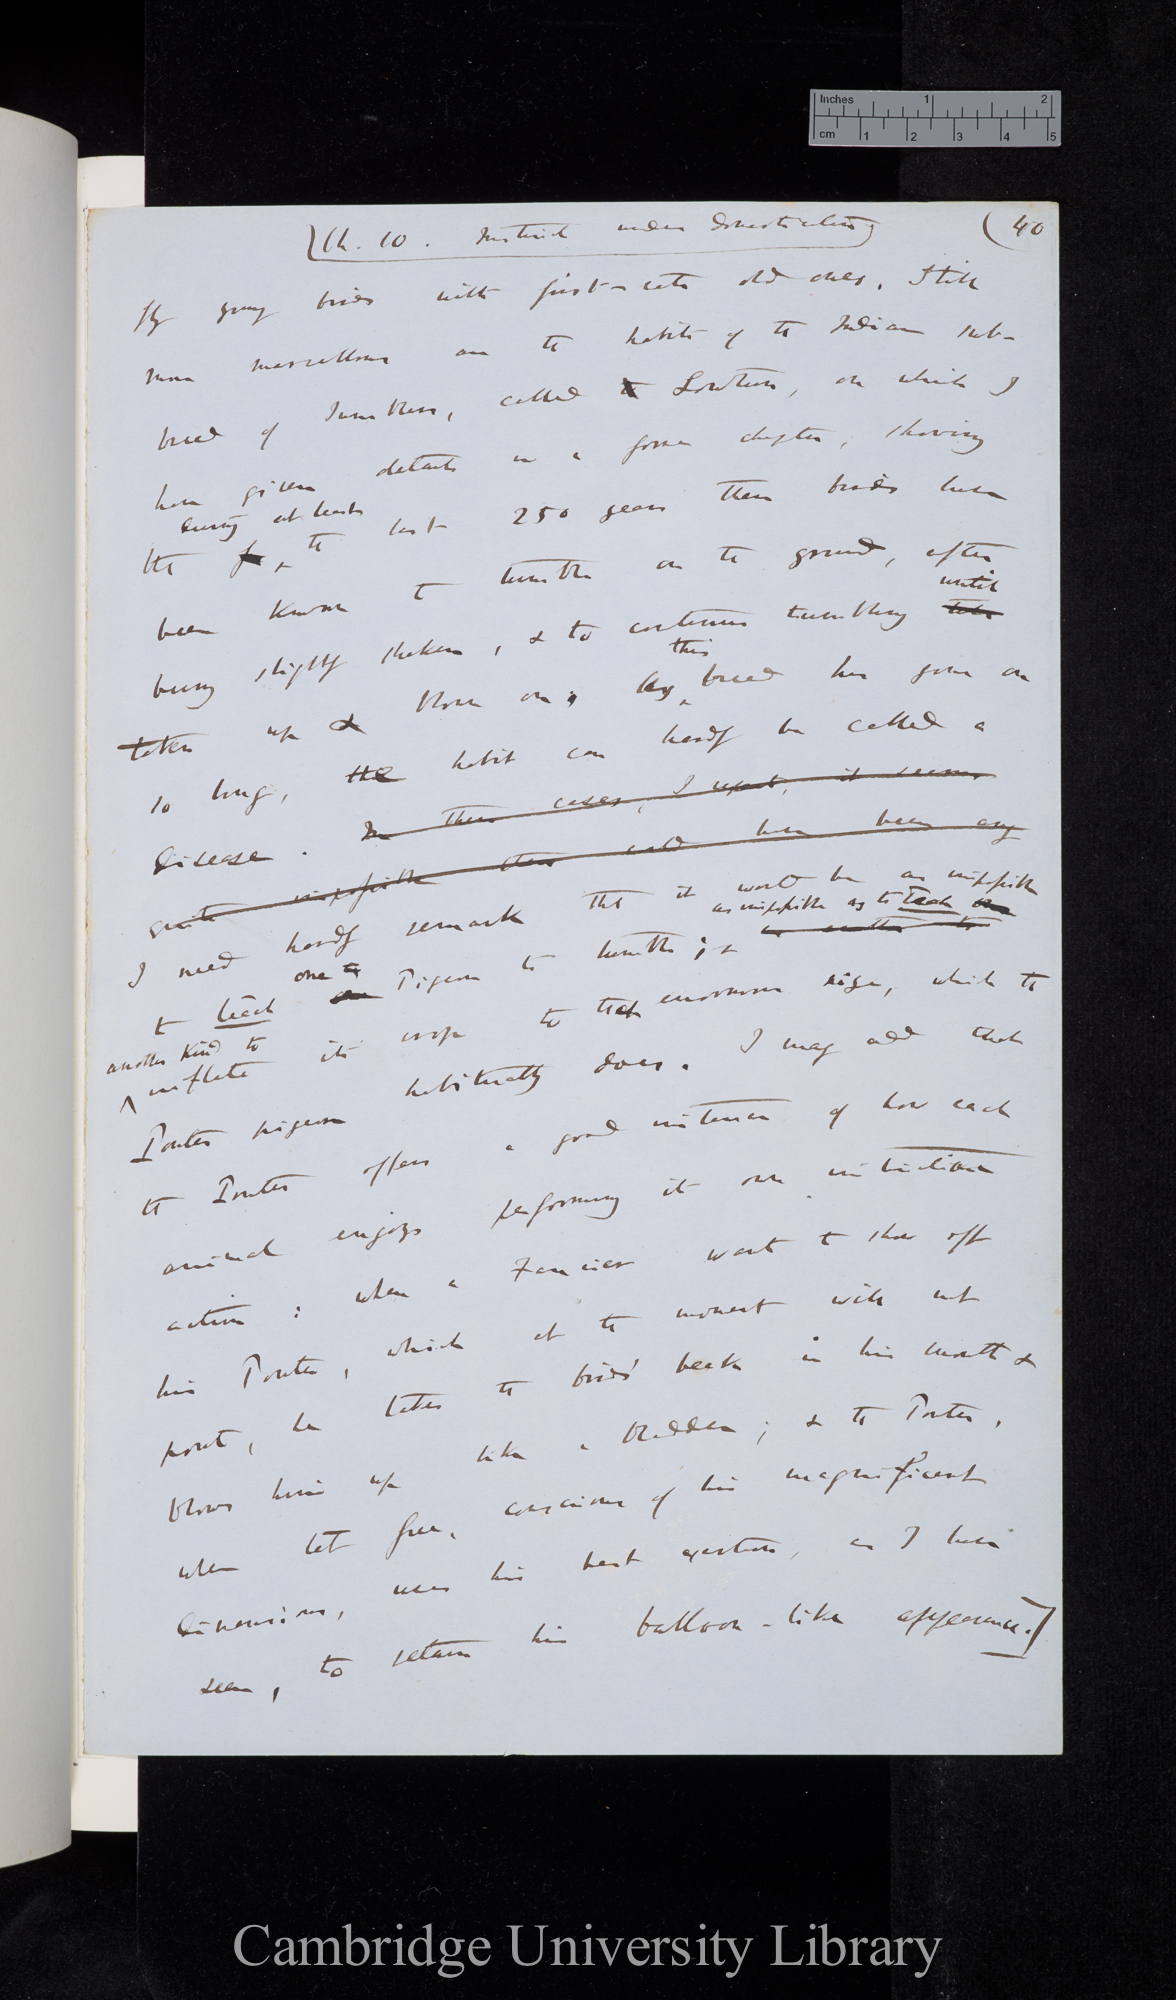 Inches 1 2
cm 1 2 3 4 5
(Ch. 10. Instinct under Domestication)
(40
fly young birds with first-rate old ones. Still
more marvellous are the habits of the Indian sub-
breed of Tumblers, called Lowtuns, on which I
have given details in a former chapter, showing
during at least
tht for the last 250 years these birds have
been known to tumble on the ground, after
until
being slightly shaken, & to continue tumbling
this
taken up & blown on; As breed has gone on
so long, the habit can hardly be called a
disease. In these cases, I repeat, it seems
quite impossible there could have been any
I need hardly remark that it would be as impossible
as impossible as to teach
to teach one Pigeon to tumble; &
another kind to
inflate its crop to that enormous size, which the
Pouter pigeon habitually does. I may add that
the Pouter offers a good instance of how each
animal enjoys performing its own instinctive
action: when a Fancier want to show off
his Pouter, which at the moment will not
pout, he takes the bird's beak in his mouth &
blows him up like a bladder; & the Pouter,
when let free, conscious of his magnificent
dimensions, uses his best exertions, as I have
seen, to retain his balloon-like appearance.]
Cambridge University Library